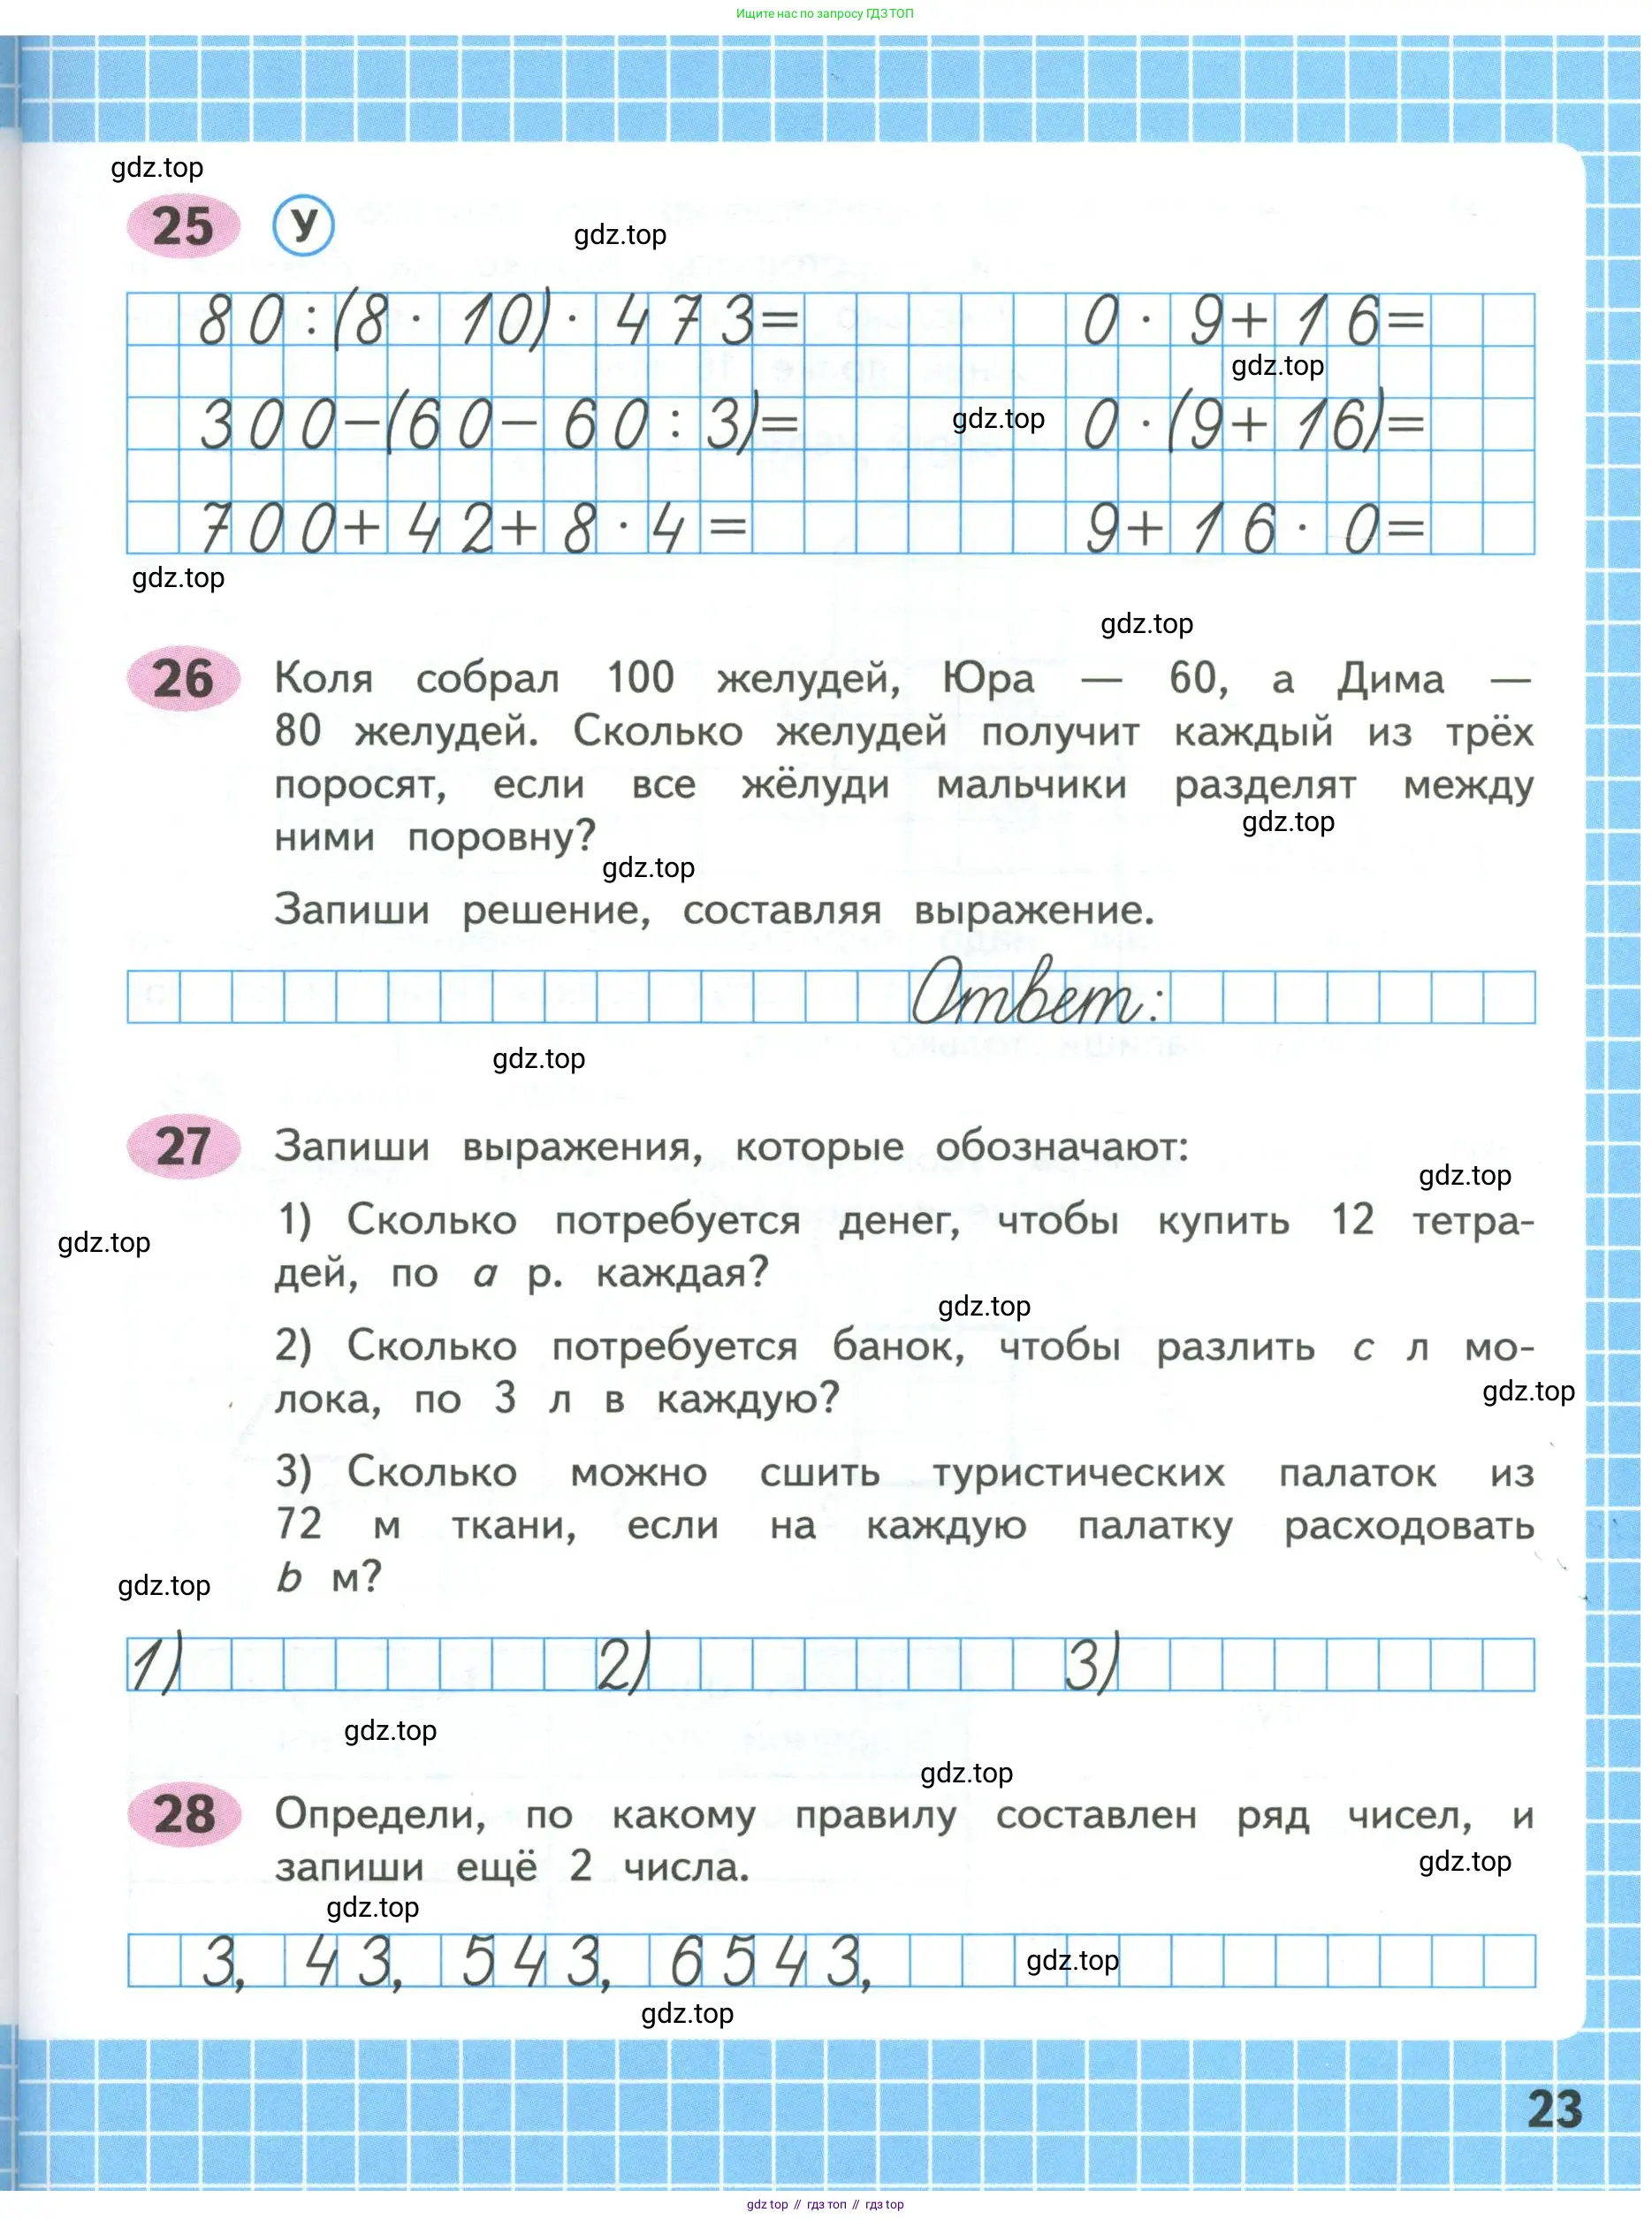 Ищите нас по запросу ГДЗ ТОП
gdz.top
25 У
gdz.top
80:(8·10)·473=
0·9+16=
gdz.top
300-(60-60:3)=
gdz.top
0·(9+16)=
700+42+8·4=
9+16·0=
gdz.top
gdz.top
26 Коля собрал 100 желудей, Юра — 60, а Дима —
80 желудей. Сколько желудей получит каждый из трёх
поросят, если все жёлуди мальчики разделят между
gdz.top
ними поровну?
gdz.top
Запиши решение, составляя выражение.
Ответ:
gdz.top
27 Запиши выражения, которые обозначают:
gdz.top
1) Сколько потребуется денег, чтобы купить 12 тетра-
gdz.top
дей, по a р. каждая?
gdz.top
2) Сколько потребуется банок, чтобы разлить c л мо-
gdz.top
лока, по 3 л в каждую?
3) Сколько можно сшить туристических палаток из
72 м ткани, если на каждую палатку расходовать
gdz.top
b м?
1) 2) 3)
gdz.top
gdz.top
28 Определи, по какому правилу составлен ряд чисел, и
запиши ещё 2 числа.
gdz.top
gdz.top
3, 43, 543, 6543,
gdz.top
gdz.top
23
gdz top // гдз топ // гдз top